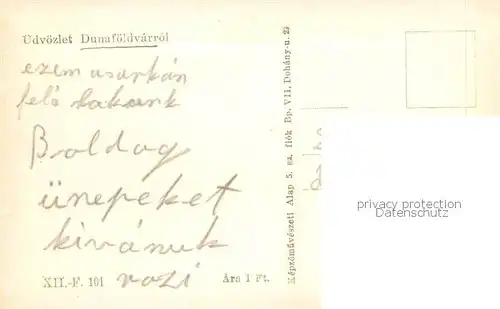 Üdvözlet Dunaföldvárról
ezem usarkán
felö lakunk
Boldog
ünepeket
kivánuk
rozi
XII.-F. 101
Ára 1 Ft.
Képzőművészeti Alap 5. sz. fiók Bp. VII, Dohány-u. 22
privacy protection
Datenschutz